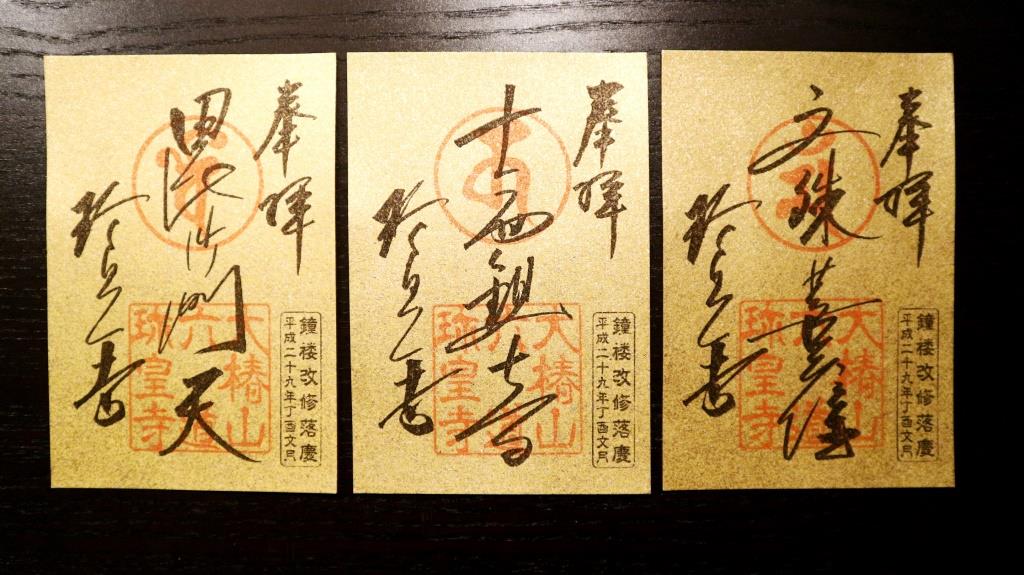 奉拝
毘沙門天
珎皇寺
大椿山
六道
珎皇寺
鐘楼改修落慶
平成二十九年丁酉文月
奉拝
十一面観世音
珎皇寺
大椿山
六道
珎皇寺
鐘楼改修落慶
平成二十九年丁酉文月
奉拝
文殊菩薩
珎皇寺
大椿山
六道
珎皇寺
鐘楼改修落慶
平成二十九年丁酉文月